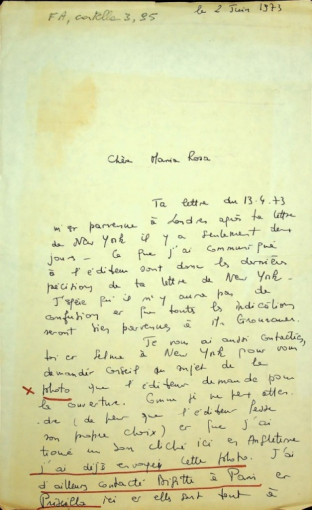 FA, cartella 3, 95
le 2 Juin 1973
Chère Maria Rosa
Ta lettre du 13.4.73
m'est parvenue à Londres après ta lettre
de New York il y a seulement deux
jours - Ce que j'ai communiqué
à l'éditeur sont donc les dernières
précisions de ta lettre de New York -
J'espère qu'il n'y aura pas de
confusion et que toutes les indications
seront bien parvenues à Mr
Je vous ai aussi contactées,
toi et Selma à New York pour vous
demander conseil au sujet de la
x photo que l'éditeur demande pour
la couverture. Comme je ne peux
de (de peur que l'éditeur fasse
son propre choix) et que j'ai
trouvé un bon cliché ici en Angleterre
j'ai déjà envoyé cette photo. J'ai
d'ailleurs contacté Brigitte à Paris et
Priscilla ici et elles sont tout à